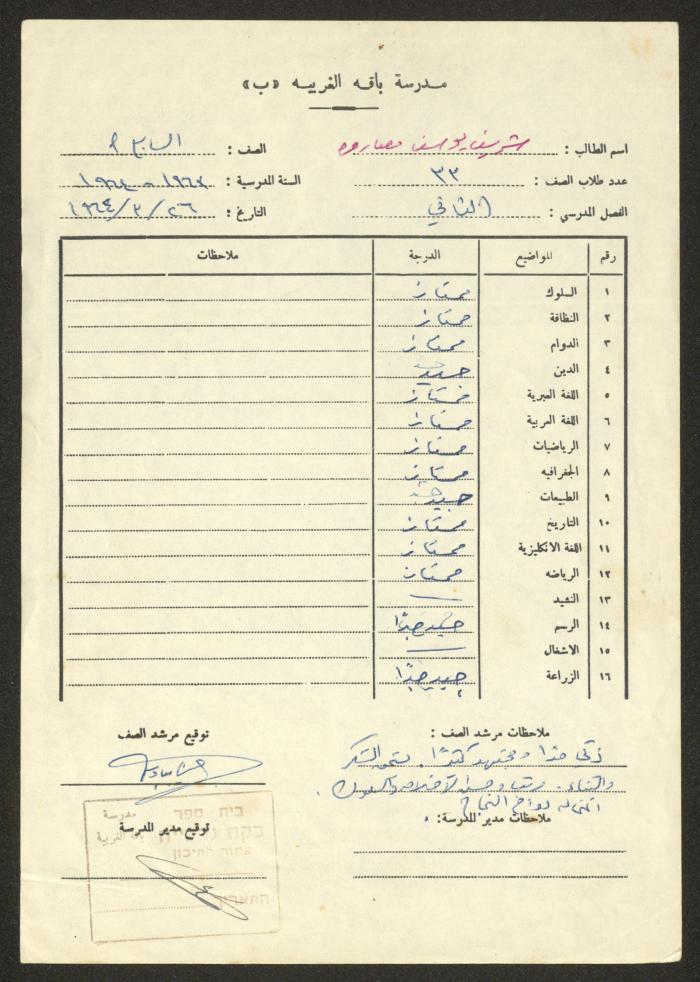 مدرسة باقه الغربيه «ب»
اسم الطالب : شريف يوسف مصاروه الصف : السابع
عدد طلاب الصف : ٣٣ السنة المدرسية : ١٩٦٣ - ١٩٦٤
الفصل المدرسي : الثاني التاريخ : ٢٦/٣/١٩٦٤
رقم المواضيع الدرجة ملاحظات
١ السلوك ممتاز
٢ النظافة ممتاز
٣ الدوام ممتاز
٤ الدين جيد
٥ اللغة العبرية ممتاز
٦ اللغة العربية ممتاز
٧ الرياضيات ممتاز
٨ الجغرافيه ممتاز
٩ الطبيعات جيد
١٠ التاريخ ممتاز
١١ اللغة الانكليزية ممتاز
١٢ الرياضه ممتاز
١٣ النشيد —
١٤ الرسم جيد جدًا
١٥ الاشغال —
١٦ الزراعة جيد جدًا
ملاحظات مرشد الصف :
ذكي جدا ومجتهد كثيرًا. يستحق الشكر
والثناء. مرتب وحسن الأخلاق والسلوك.
اتمنى له دوام النجاح
ملاحظات مدير المدرسة:
توقيع مرشد الصف
توقيع مدير المدرسة
בית ספר
مدرسة
באקה
باقة الغربية
אזור התיכון
התאריך